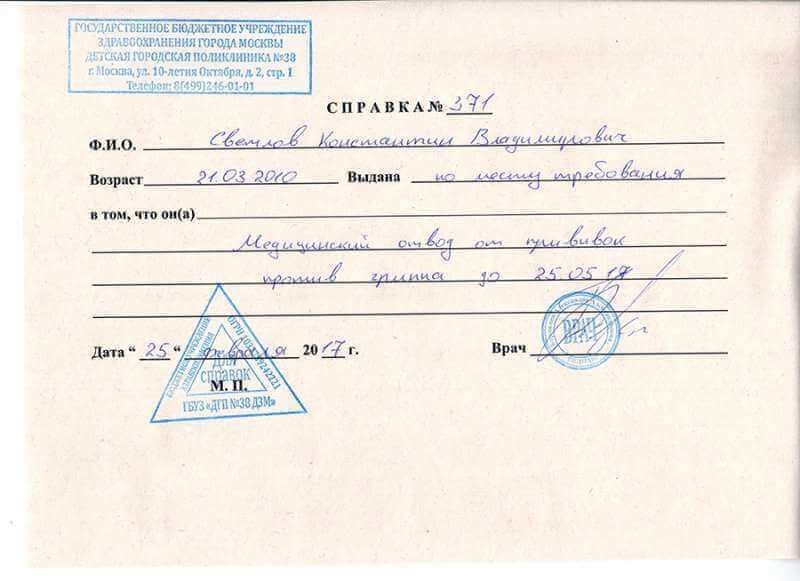 ГОСУДАРСТВЕННОЕ БЮДЖЕТНОЕ УЧРЕЖДЕНИЕ
ЗДРАВООХРАНЕНИЯ ГОРОДА МОСКВЫ
ДЕТСКАЯ ГОРОДСКАЯ ПОЛИКЛИНИКА №38
г. Москва, ул. 10-летия Октября, д. 2, стр. 1
Телефон: 8(499)246-01-01
СПРАВКА № 371
Ф.И.О. Светлов Константин Владимирович
Возраст 21.03.2010 Выдана по месту требования
в том, что он(а)
Медицинский отвод от прививок
против гриппа до 25.05.17
Дата “ 25 “ февраля 2017 г. Врач
ВРАЧ
БЮДЖЕТНОЕ УЧРЕЖДЕНИЕ
ЗДРАВООХРАНЕНИЯ
ОГРН
ДЛЯ
СПРАВОК
М. П.
ГБУЗ «ДГП №38 ДЗМ»